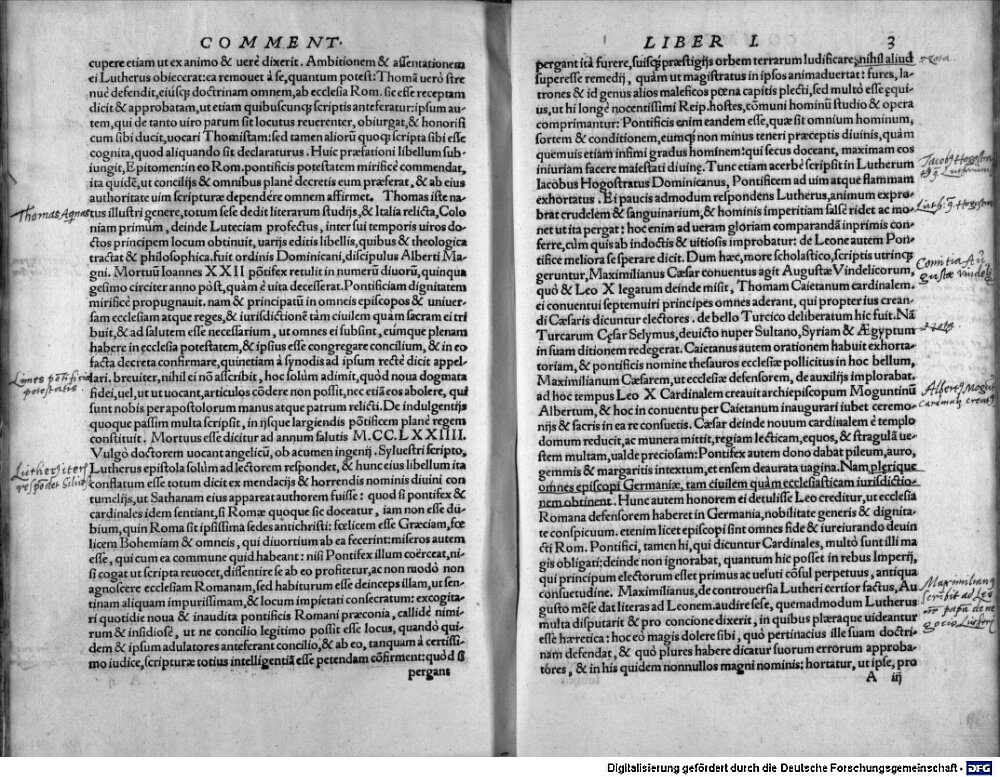 COMMENT.
cupere etiam ut ex animo & uerè dixerit. Ambitionem & assentationem
ei Lutherus obiecerat: ea remouet à se, quantum potest: Thomã uerò stre
nuè defendit, eiúsq; doctrinam omnem, ab ecclesia Rom. sic esse receptam
dicit & approbatam, ut etiam quibuscunq; scriptis anteferatur: ipsum au-
tem, qui de tanto uiro parum sit locutus reuerenter, obiurgat, & honorifi
cum sibi ducit, uocari Thomistam: sed tamen aliorũ quoq; scripta sibi esse
cognita, quod aliquando sit declaraturus. Huic præfationi libellum sub-
iungit, Epitomen: in eo Rom. pontificis potestatem mirificè commendat,
ita quidẽ, ut concilijs & omnibus planè decretis eum præferat, & ab eius
authoritate uim scripturæ dependére omnem affirmet. Thomas iste na-
Thomas Aqnas
tus illustri genere, totum sese dedit literarum studijs, & Italia relicta, Colo
niam primùm, deinde Luteciam profectus, inter sui temporis uiros do-
ctos principem locum obtinuit, uarijs editis libellis, quibus & theologica
tractat & philosophica. fuit ordinis Dominicani, discipulus Alberti Ma-
gni. Mortuũ Ioannes XXII põtifex retulit in numerũ diuorũ, quinqua
gesimo circiter anno pòst, quàm è uita decesserat. Pontificiam dignitatem
mirificè propugnauit. nam & principatũ in omneis episcopos & uniuer-
sam ecclesiam atque reges, & iurisdictionẽ tàm ciuilem quàm sacram ei tri
buit, & ad salutem esse necessarium, ut omnes ei subsint, eúmque plenam
habere in ecclesia potestatem, & ipsius esse congregare concilium, & in eo
facta decreta confirmare, quinetiam à synodis ad ipsum rectè dicit appel-
Limes põtificiæ
potestatis.
lari. breuiter, nihil ei nõ asscribit, hoc solùm adimit, quòd noua dogmata
fidei, uel, ut ut uocant, articulos cõdere non possit, nec etiã eos abolere, qui
sunt nobis per apostolorum manus atque patrum relicti. De indulgentijs
quoque passim multa scripsit, in ijsque largiendis põtificem planè regem
constituit. Mortuus esse dicitur ad annum salutis M.CC.LXXIIII.
Vulgò doctorem uocant angelicũ, ob acumen ingenij. Syluestri scripto,
Lutherus epistola solùm ad lectorem respondet, & hunc eius libellum ita
conflatum esse totum dicit ex mendacijs & horrendis nominis diuini con
tumelijs, ut Sathanam eius appareat authorem fuisse: quod si pontifex &
cardinales idem sentiant, si Romæ quoque sic doceatur, iam non esse du-
bium, quin Roma sit ipsissima sedes antichristi: fœlicem esse Græciam, fœ
licem Bohemiam & omneis, qui diuortium ab ea fecerint: miseros autem
esse, qui cum ea commune quid habeant: nisi Pontifex illum coërceat, ni-
si cogat ut scripta reuocet, dissentire se ab eo profitetur, ac non modò non
agnoscere ecclesiam Romanam, sed habiturum esse deinceps illam, ut sen-
tinam aliquam impurissimam, & locum impietati consecratum: excogita-
ri quotidie noua & inaudita pontificis Romani præconia, callidè nimi-
rum & insidiosè, ut ne concilio legitimo possit esse locus, quandò qui-
dem & ipsum adulatores anteferant concilio, & ab eo, tanquam à certissi-
mo iudice, scripturæ totius intelligentiã esse petendam cõfirment: quòd si
pergant
LIBER I. 3
pergant ità furere, suisq; præstigijs orbem terrarum ludificare, nihil aliud
superesse remedij, quàm ut magistratus in ipsos animaduertat: fures, la-
trones & id genus alios maleficos pœna capitis plecti, sed multò esse ęqui-
us, ut hi longè nocentissimi Reip. hostes, cõmuni hominũ studio & opera
comprimantur: Pontificis enim eandem esse, quæ sit omnium hominum,
sortem & conditionem, eumq; non minus teneri præceptis diuinis, quàm
quemuis etiam infimi gradus hominem: qui secus doceant, maximam eos
iniuriam facere maiestati diuinę. Tunc etiam acerbè scripsit in Lutherum
Iacobus Hogostratus Dominicanus, Pontificem ad uim atque flammam
exhortatus. Ei paucis admodum respondens Lutherus, animum expro-
brat crudelem & sanguinarium, & hominis imperitiam falsè ridet ac mo-
net ut ita pergat: hoc enim ad ueram gloriam comparandã inprimis con-
ferre, cùm quis ab indoctis & uitiosis improbatur: de Leone autem Pon-
tifice meliora se sperare dicit. Dum hæc, more scholastico, scriptis utrinq;
geruntur, Maximilianus Cæsar conuentus agit Augustæ Vindelicorum,
quò & Leo X legatum deinde misit, Thomam Caietanum cardinalem.
ei conuentui septemuiri principes omnes aderant, qui propter ius crean-
di Cæsaris dicuntur electores. de bello Turcico deliberatum hic fuit. Nã
Turcarum Cęsar Selymus, deuicto nuper Sultano, Syriam & Ægyptum
in suam ditionem redegerat. Caietanus autem orationem habuit exhorta-
toriam, & pontificis nomine thesauros ecclesiæ pollicitus in hoc bellum,
Maximilianum Cæsarem, ut ecclesiæ defensorem, de auxilijs implorabat.
ad hoc tempus Leo X Cardinalem creauit archiepiscopum Moguntinũ
Albertum, & hoc in conuentu per Caietanum inaugurari iubet ceremo-
nijs & sacris in ea re consuetis. Cæsar deinde nouum cardinalem è templo
domum reducit, ac munera mittit, regiam lecticam, equos, & stragulã ue-
stem multam, ualde preciosam: Pontifex autem dono dabat pileum, auro,
gemmis & margaritis intextum, et ensem deaurata uagina. Nam plerique
omnes episcopi Germaniæ, tam ciuilem quàm ecclesiasticam iurisdictio-
nem obtinent. Hunc autem honorem ei detulisse Leo creditur, ut ecclesia
Romana defensorem haberet in Germania, nobilitate generis & dignita-
te conspicuum. etenim licet episcopi sint omnes fide & iureiurando deuin
cti Rom. Pontifici, tamen hi, qui dicuntur Cardinales, multò sunt illi ma
gis obligati: deinde non ignorabat, quantum hic posset in rebus Imperij,
qui principum electorum esset primus ac ueluti cõsul perpetuus, antiqua
consuetudine. Maximilianus, de controuersia Lutheri certior factus, Au
gusto mẽse dat literas ad Leonem. audire sese, quemadmodum Lutherus
multa disputarit & pro concione dixerit, in quibus plæraque uideantur
esse hæretica: hoc eò magis dolere sibi, quò pertinacius ille suam doctri-
nam defendat, & quò plures habere dicatur suorum errorum approba-
tores, & in his quidem nonnullos magni nominis: hortatur, ut ipse, pro
A iij
Maximilianus
scribit ad Leo
nẽ papã de ne
gocio Lutheri
Digitalisierung gefördert durch die Deutsche Forschungsgemeinschaft - DFG